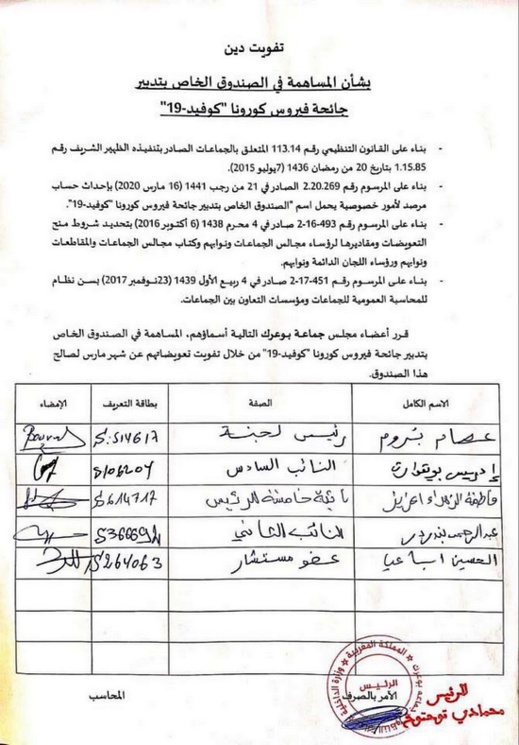 تفويت دين
بشأن المساهمة في الصندوق الخاص بتدبير
جائحة فيروس كورونا "كوفيد-19"
- بناء على القانون التنظيمي رقم 113.14 المتعلق بالجماعات الصادر بتنفيذه الظهير الشريف رقم
1.15.85 بتاريخ 20 من رمضان 1436 (7يوليو 2015).
- بناء على المرسوم رقم 2.20.269 الصادر في 21 من رجب 1441 (16 مارس 2020) بإحداث حساب
مرصد لأمور خصوصية يحمل اسم "الصندوق الخاص بتدبير جائحة فيروس كورونا "كوفيد-19".
- بناء على المرسوم رقم 493-16-2 صادر في 4 محرم 1438 (6 أكتوبر 2016) بتحديد شروط منح
التعويضات ومقاديرها لرؤساء مجالس الجماعات ونوابهم وكتاب مجالس الجماعات والمقاطعات
ونوابهم ورؤساء اللجان الدائمة ونوابهم.
- بناء على المرسوم رقم 451-17-2 صادر في 4 ربيع الأول 1439 (23نوفمبر 2017) بسن نظام
للمحاسبة العمومية للجماعات ومؤسسات التعاون بين الجماعات.
قرر أعضاء مجلس جماعة بوعرك التالية أسماؤهم، المساهمة في الصندوق الخاص
بتدبير جائحة فيروس كورونا "كوفيد-19" من خلال تفويت تعويضاتهم عن شهر مارس لصالح
هذا الصندوق.
الاسم الكامل الصفة بطاقة التعريف الإمضاء
عصام بروم رئيس لجنة S.514617
إدريس النائب السادس S106204
فاطمة الزهراء اعزيز نائبة خامسة للرئيس S.614717
عبدالرحمن النائب الثاني
الحسين عضو مستشار S264063
المملكة المغربية
وزارة الداخلية
الرئيس
الآمر بالصرف المحاسب
الرئيس
محمادي توحتوح